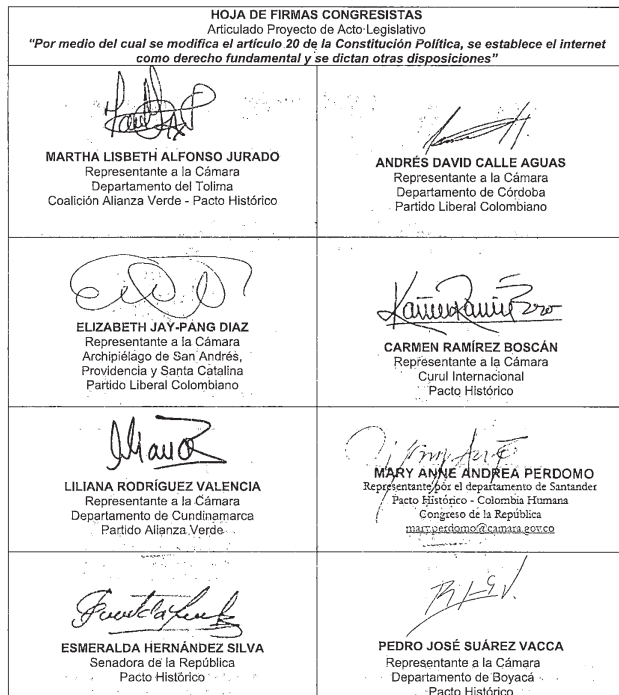 HOJA DE FIRMAS CONGRESISTAS
Articulado Proyecto de Acto Legislativo
"Por medio del cual se modifica el artículo 20 de la Constitución Política, se establece el internet
como derecho fundamental y se dictan otras disposiciones"
MARTHA LISBETH ALFONSO JURADO
Representante a la Cámara
Departamento del Tolima
Coalición Alianza Verde - Pacto Histórico
ANDRÉS DAVID CALLE AGUAS
Representante a la Cámara
Departamento de Córdoba
Partido Liberal Colombiano
ELIZABETH JAY-PANG DIAZ
Representante a la Cámara
Archipiélago de San Andrés,
Providencia y Santa Catalina
Partido Liberal Colombiano
CARMEN RAMÍREZ BOSCÁN
Representante a la Cámara
Curul Internacional
Pacto Histórico
LILIANA RODRÍGUEZ VALENCIA
Representante a la Cámara
Departamento de Cundinamarca
Partido Alianza Verde
MARY ANNE ANDREA PERDOMO
Representante por el departamento de Santander
Pacto Histórico - Colombia Humana
Congreso de la República
mary.perdomo@camara.gov.co
ESMERALDA HERNÁNDEZ SILVA
Senadora de la República
Pacto Histórico
PEDRO JOSÉ SUÁREZ VACCA
Representante a la Cámara
Departamento de Boyacá
Pacto Histórico